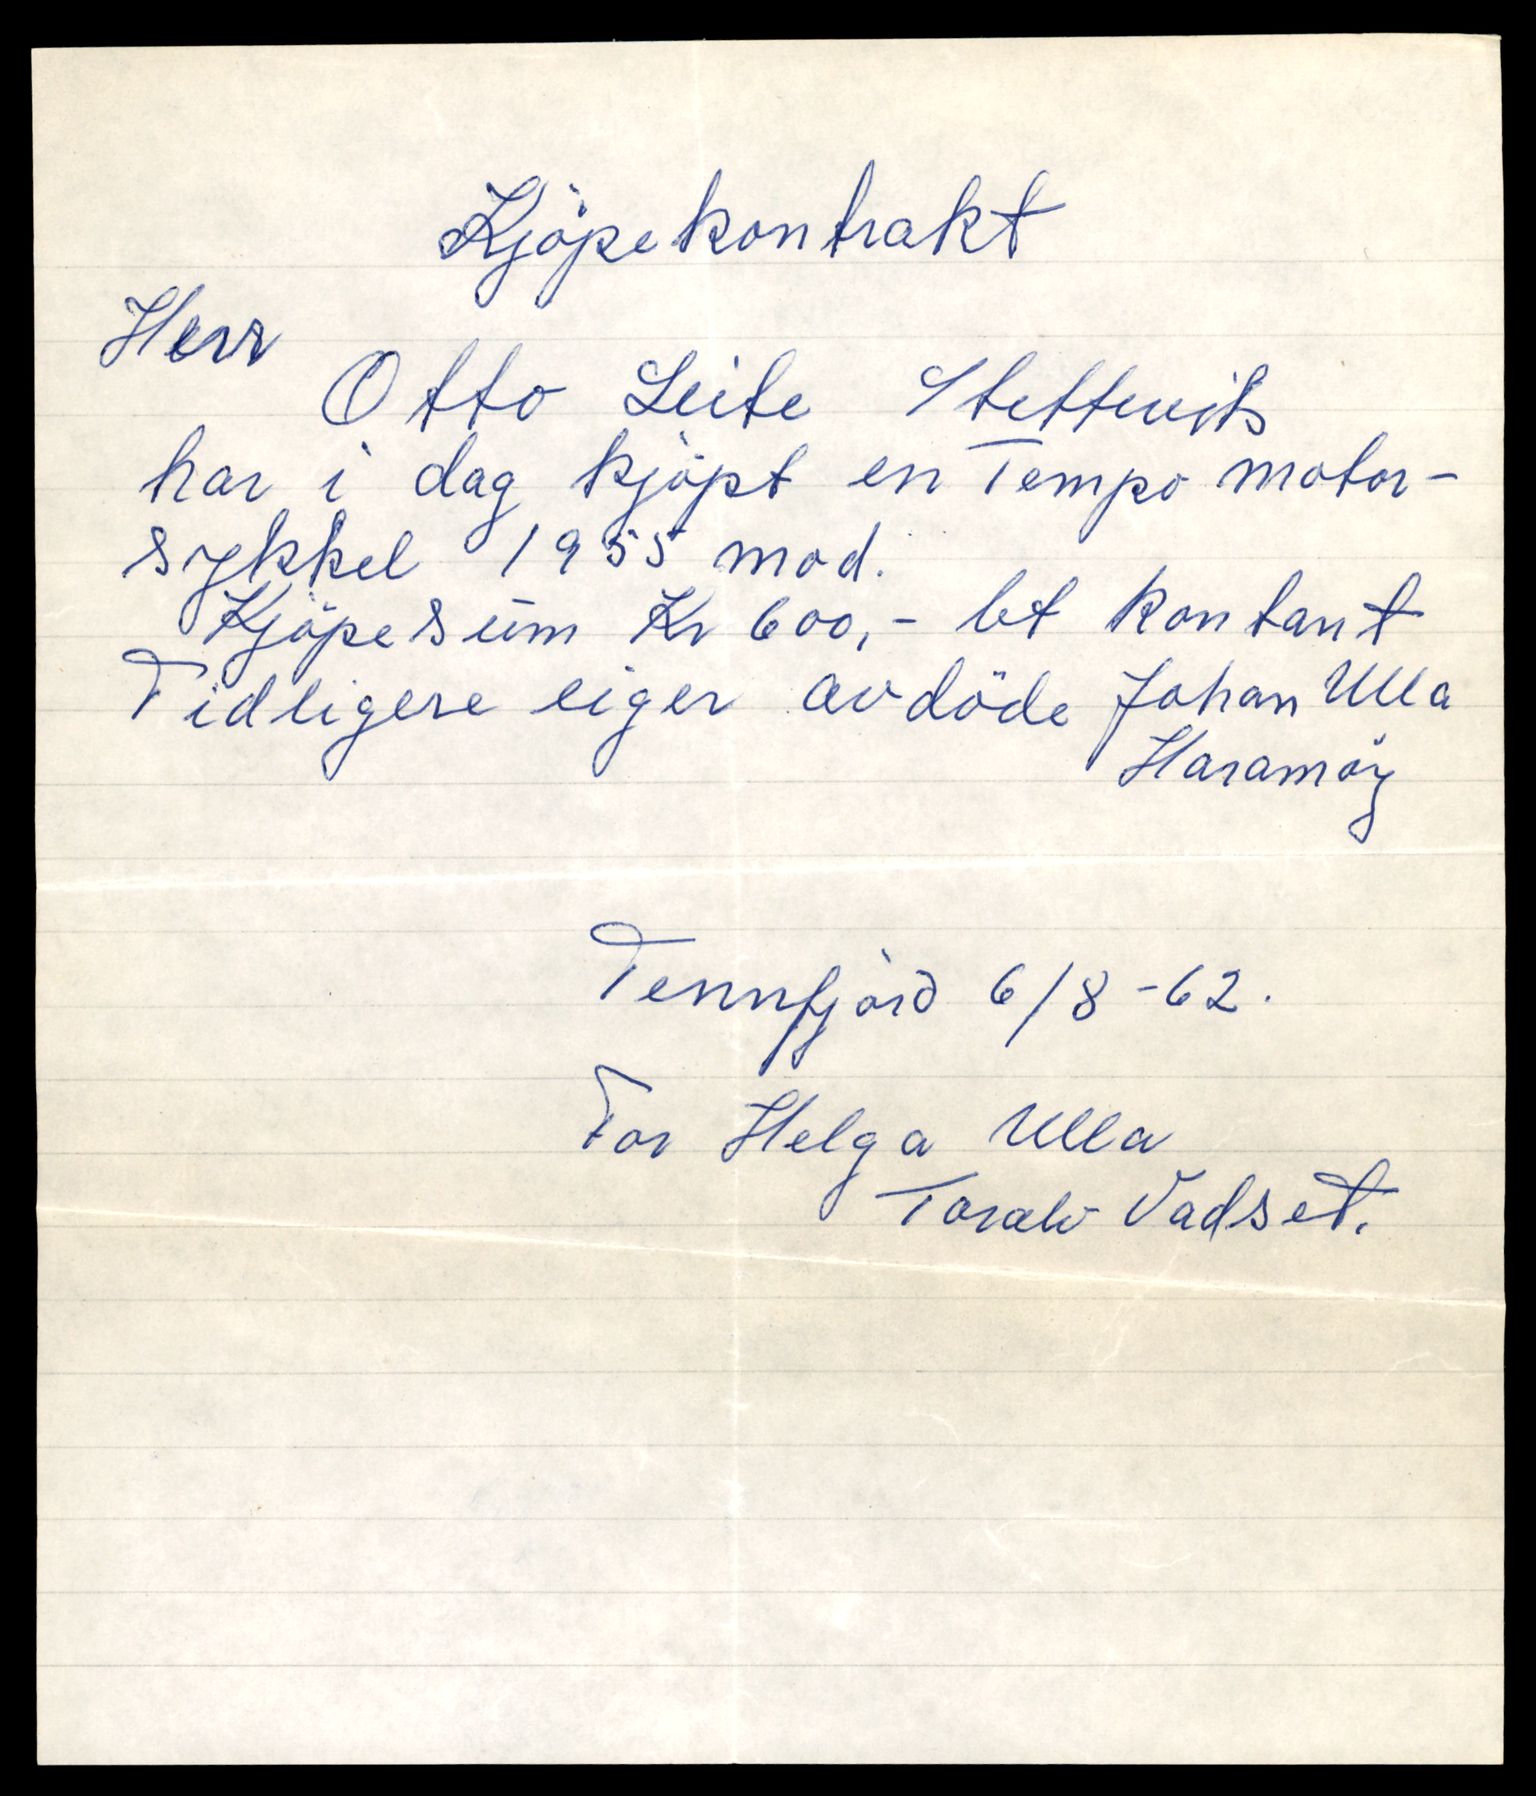 Kjöpekontrakt
Herr
Otto Leite Stettevik
har i dag kjöpt en Tempo motor-
sykkel 1955 mod.
Kjöpesum Kr 600,- bt kontant
Tidligere eiger avdöde Johan Ulla
Haramöy
Tennfjord 6/8-62.
For Helga Ulla
Toralv Vadset.